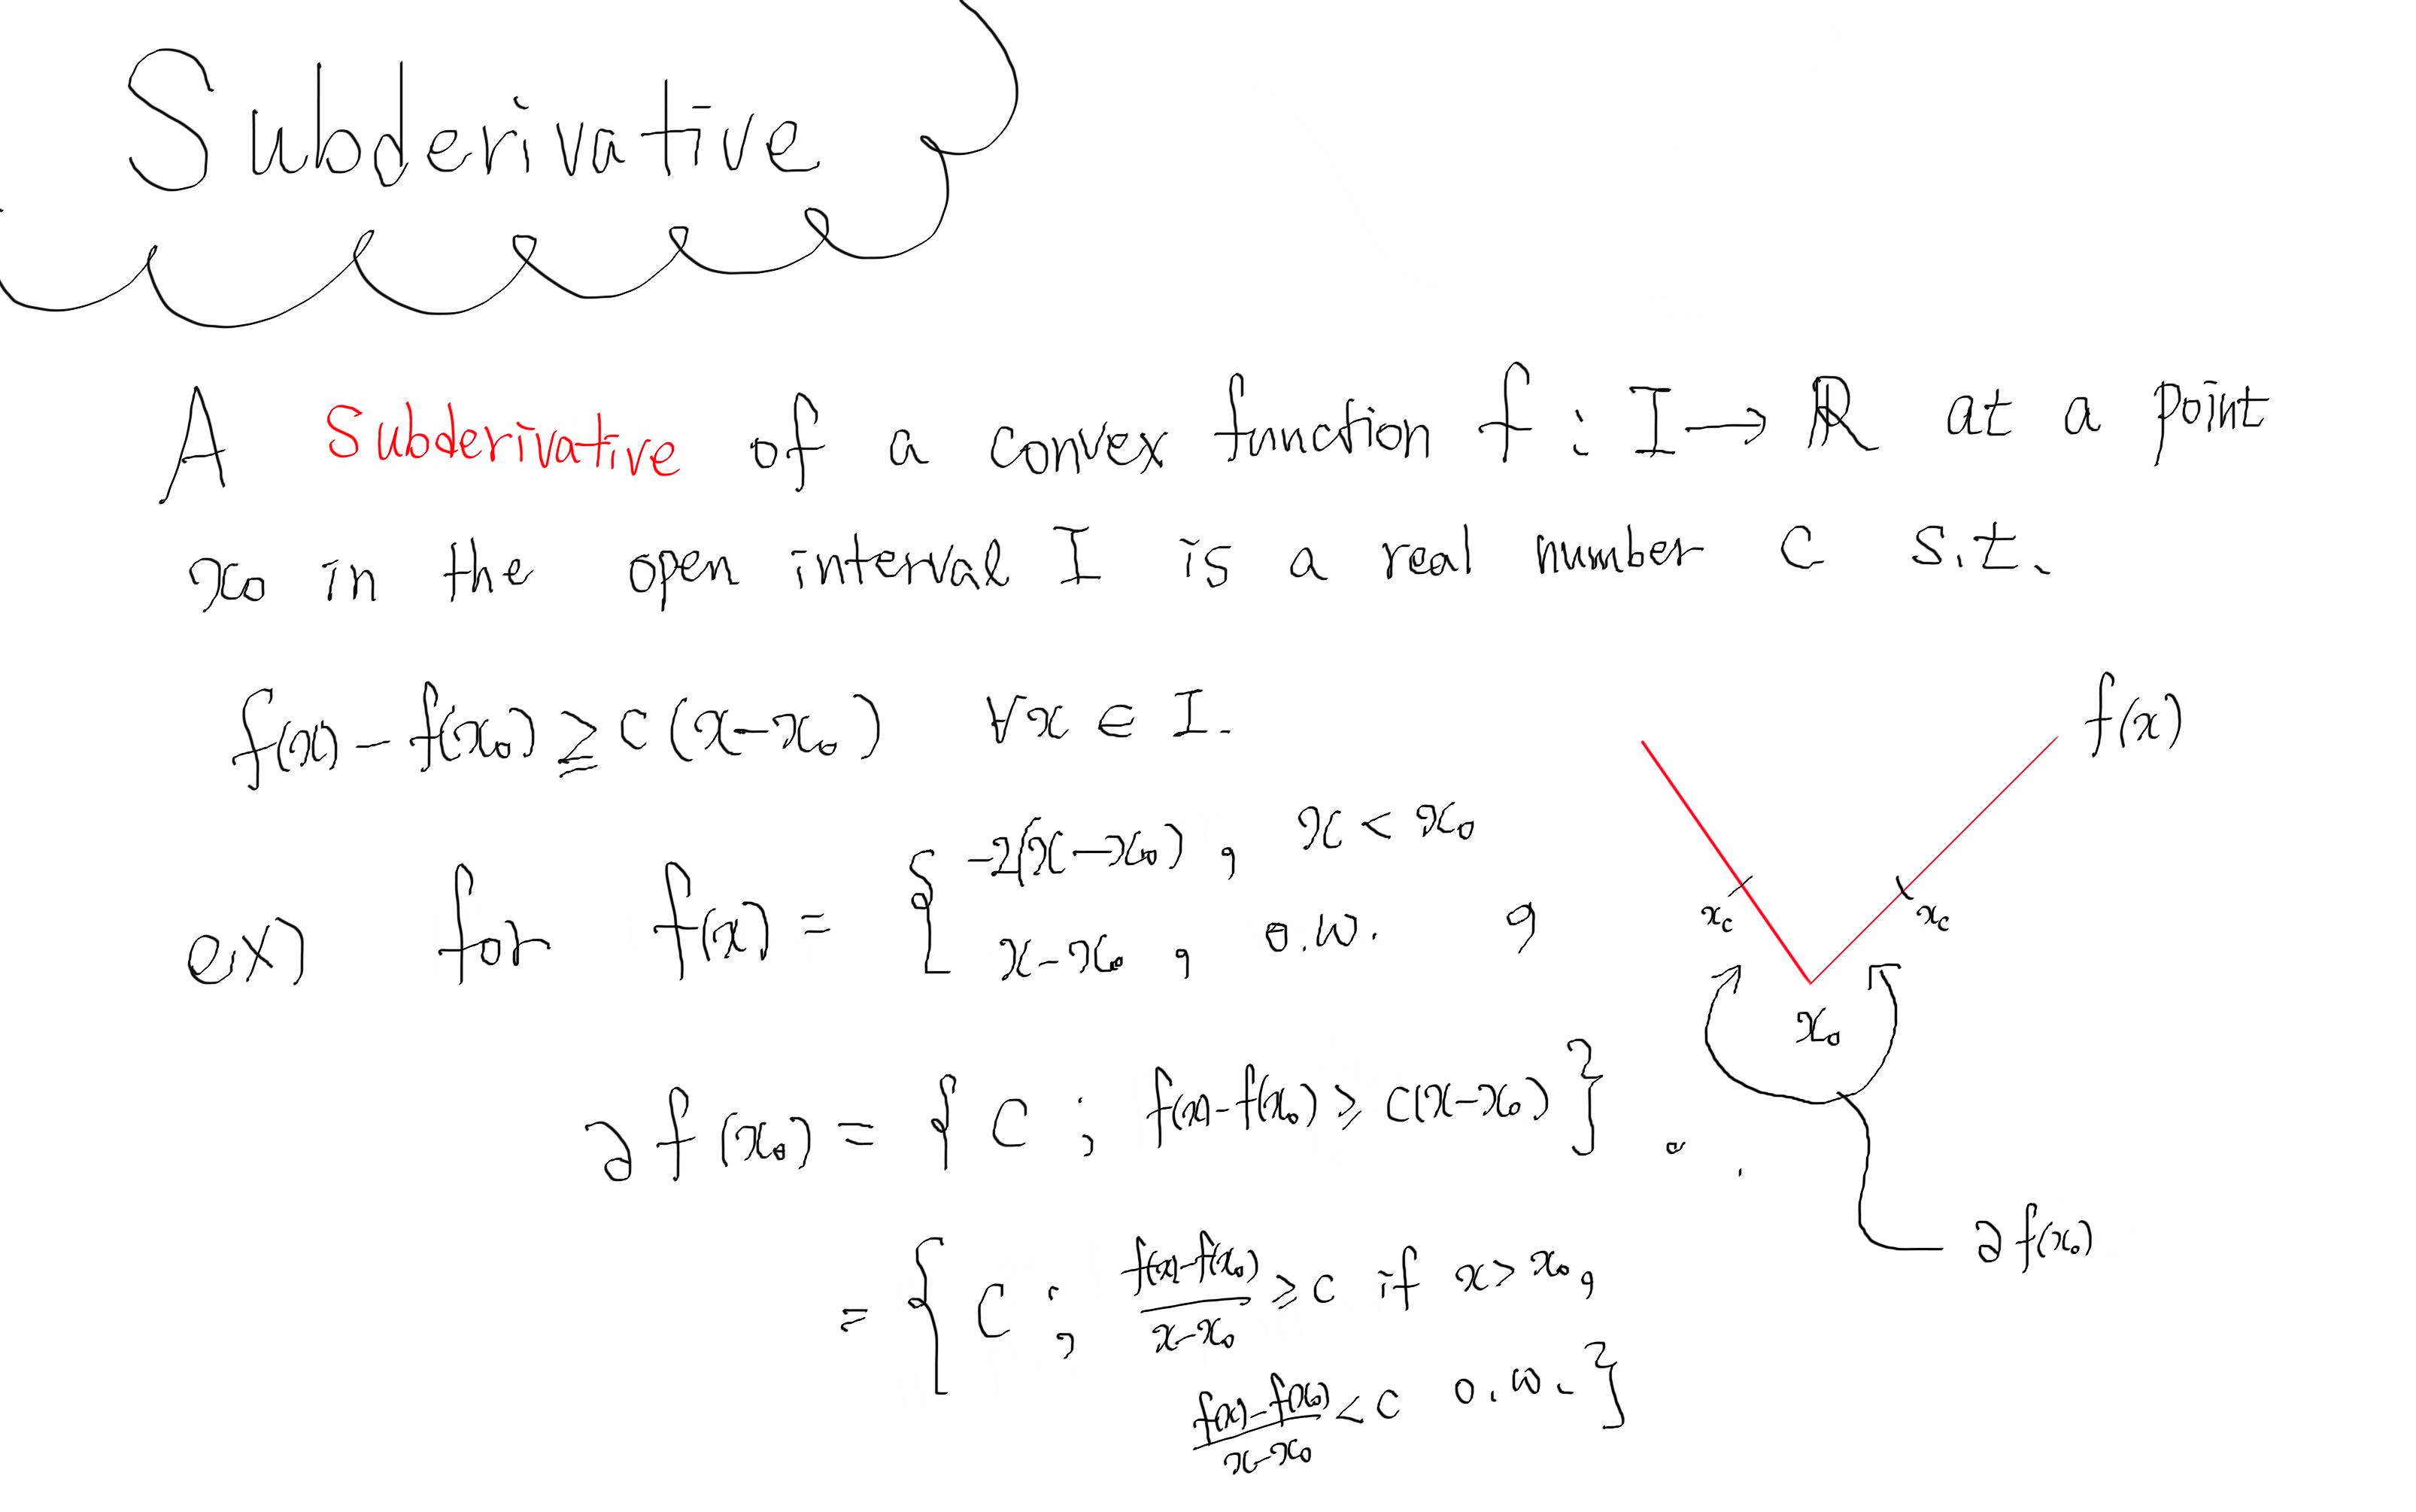 Subderivative
A Subderivative of a convex function f : I → ℝ at a point
x₀ in the open interval I is a real number C s.t.
f(x)-f(x₀) ≧ c(x-x₀) ∀x ∈ I.
f(x)
ex) for f(x) = { -2(x-x₀), x < x₀
x-x₀, o.w. ,
x_c x_c
x₀
∂f(x₀) = { C ; f(x)-f(x₀) ≥ c(x-x₀) } .
∂f(x₀)
= { C ; \frac{f(x)-f(x₀)}{x-x₀} ≥ c if x > x₀,
\frac{f(x)-f(x₀)}{x-x₀} < c o.w. }